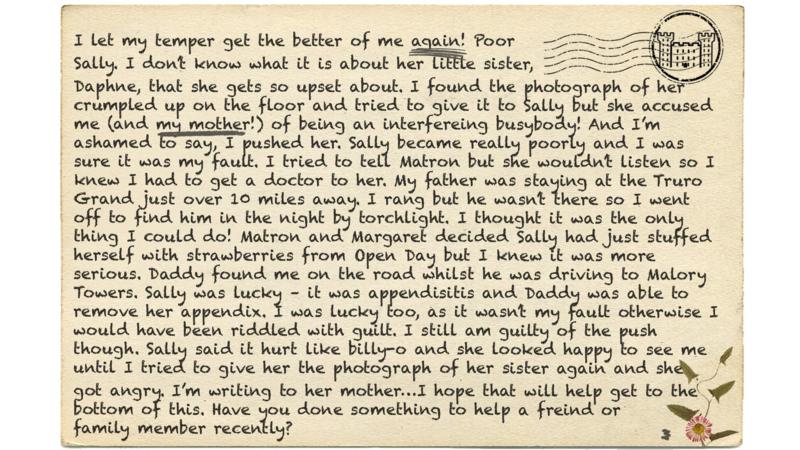 I let my temper get the better of me again! Poor
Sally. I don't know what it is about her little sister,
Daphne, that she gets so upset about. I found the photograph of her
crumpled up on the floor and tried to give it to Sally but she accused
me (and my mother!) of being an interfereing busybody! And I'm
ashamed to say, I pushed her. Sally became really poorly and I was
sure it was my fault. I tried to tell Matron but she wouldn't listen so I
knew I had to get a doctor to her. My father was staying at the Truro
Grand just over 10 miles away. I rang but he wasn't there so I went
off to find him in the night by torchlight. I thought it was the only
thing I could do! Matron and Margaret decided Sally had just stuffed
herself with strawberries from Open Day but I knew it was more
serious. Daddy found me on the road whilst he was driving to Malory
Towers. Sally was lucky – it was appendisitis and Daddy was able to
remove her appendix. I was lucky too, as it wasn't my fault otherwise I
would have been riddled with guilt. I still am guilty of the push
though. Sally said it hurt like billy-o and she looked happy to see me
until I tried to give her the photograph of her sister again and she
got angry. I'm writing to her mother...I hope that will help get to the
bottom of this. Have you done something to help a freind or
family member recently?